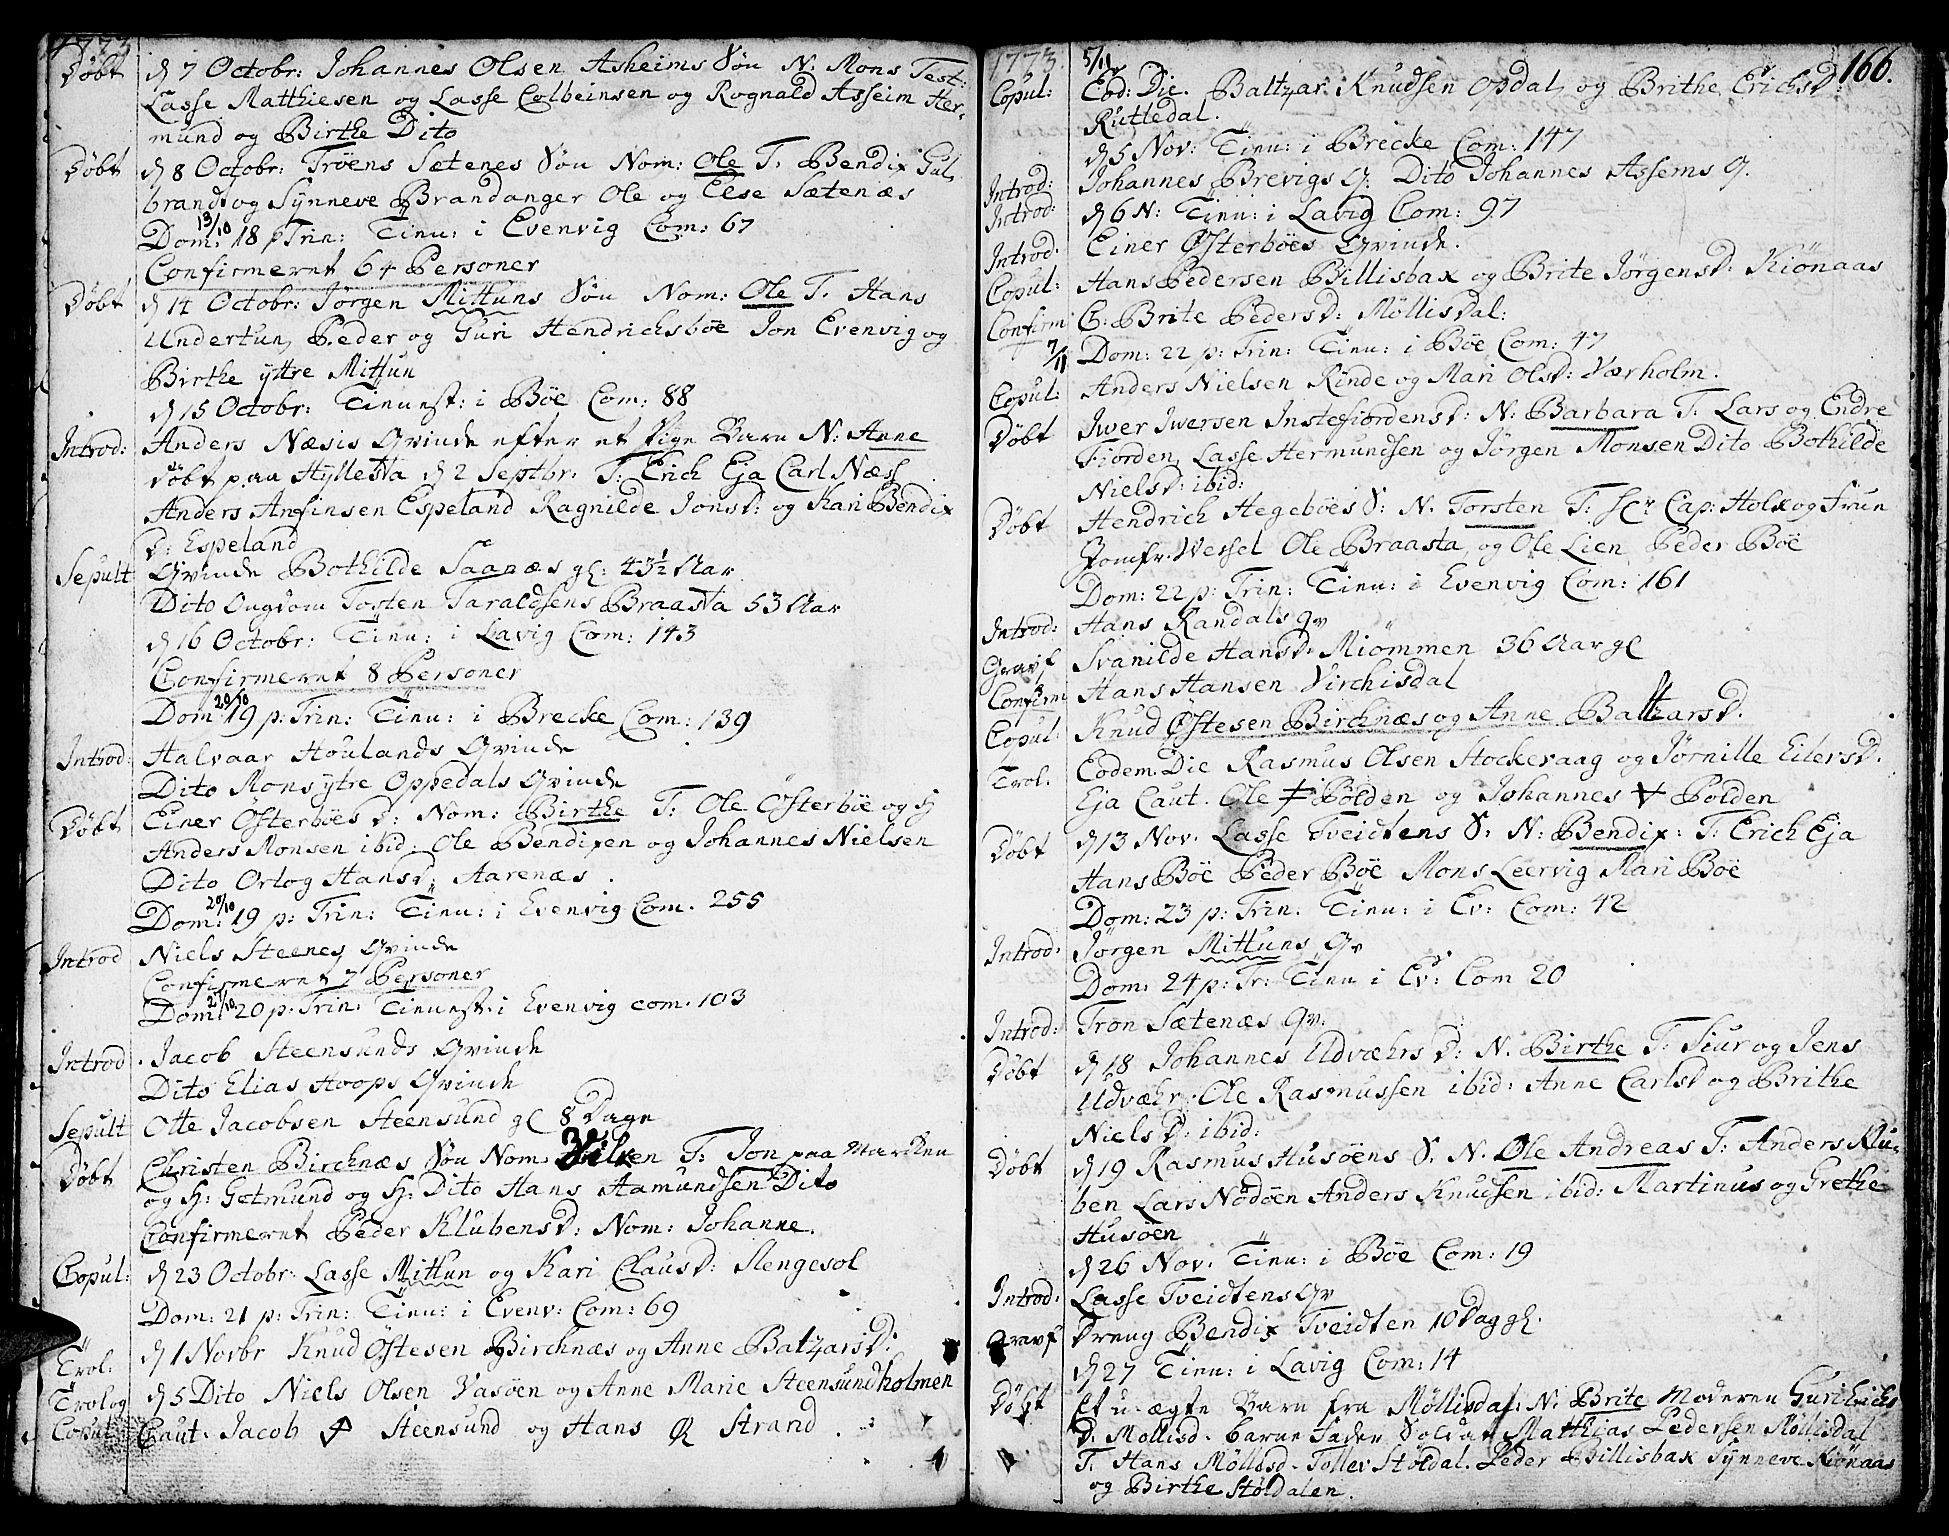 1773
Døbt d 7 Octobr: Johannes Olsen Asheims Søn N. Mons Test:
Lasse Matthiesen og Lasse Colbeinsen og Rognald Asseim Her-
mund og Birthe Dito
Døbt d 8 Octobr: Trøens Sætenes Søn Nom: Ole T. Bendix Gul
brandt og Synneve Brandanger Ole og Else Sætenæs
13/10
Dom: 18 p Trin: Tien: i Evenvig Com: 67
Confirmeret 64 Personer
Døbt d 14 Octobr: Jørgen Mittuns Søn Nom: Ole T. Hans
Undertun, Peder og Guri Hendrichsbøe Jon Evenvig og
Birthe yttre Mittun
d 15 Octobr: Tienest: i Bøe Com: 88
Introd: Anders Næsis Qvinde efter et Pige Barn N: Anne
døbt paa Hyllesta d 2 Septbr. T. Erich Eja Carl Næss
Anders Anfinsen Espeland Ragnilde Jonsd: og Kari Bendix
D: Espeland
Sepult Qvinde Bothilde Saanæs gl: 43½ Aar
Dito Ungdom Tosten Taraldsens Braasta 53 Aar
d 16 Octobr: Tien: i Lavig Com: 143
Confirmeret 8 Personer
20/10
Dom: 19 p: Trin: Tien: i Brecke Com: 139
Introd: Halvaar Houlands Qvinde
Dito Mons ytre Oppedals Qvinde
Døbt Einer Østerbøes D: Nom: Birthe T: Ole Østerbøe og H
Anders Monsen ibid: Ole Bendixen og Johannes Nielsen
Dito Ortog Hansd: Aarenæs
20/10
Dom: 19 p: Trin: Tien: i Evenvig Com. 255
Introd Niels Steenes Qvinde
Confirmeret 7 Personer
27/10
Dom: 20 p: Trin: Tienest: i Evenvig com. 103
Introd Jacob Steensunds Qvinde
Dito Elias Hoops Qvinde
Sepult Otte Jacobsen Steensund gl 8 Dage
Døbt Christen Birchnæs Søn Nom. T. Jon paa Marchen
og H: Getmund og H: Dito Hans Aamundsen Dito
Confirmeret Peder Klubensd: Nom: Johanne.
Copul: d 23 Octobr: Lasse Mittun og Kari Clausd: Slengesol
Dom: 21 p: Trin: Tien: i Evenv: Com: 69
Trol: d 1 Novbr Knud Østesen Birchnæs og Anne Baltzarsd:
Trol og d 5 Dito Niels Olsen Vasøen og Anne Marie Steensundholmen
Copul: Caut. Jacob Steensund og Hans Strand
1773. 5/11 166.
Copul: Eod: Die. Baltzar Knudsen Opdal, og Brithe Erichsd:
Ruttedal.
d 5 Nov: Tien: i Brecke Com: 147
Introd: Johannes Brevigs Q. Dito Johannes Assems Q.
Introd: d 6 N: Tien: i Lavig Com: 97
Introd: Einer Østerbøes Qvinde.
Copul: Hans Pedersen Billisbax og Brite Jørgensd: Kiønaas
Confirm C. Brite Pedersd: Møllisdal:
7/11 Dom: 22 p: Trin: Tien: i Bøe Com: 47
Copul: Anders Nielsen Rinde og Mari Olsd: Værholm.
Døbt Iwer Iwersen Instefiordens D: N: Barbara T. Lars og Endre
Fiorden, Lasse Hermundsen og Jørgen Monsen Dito Bothilde
Nielsd: ibid:
Døbt Hendrich Hegebøes S: N. Torsten T: Hr Cap: Holx og Frun
Jomfr. Wessel Ole Braasta, og Ole Lien Peder Bøe
Dom: 22 p: Trin: Tien: i Evenvig Com: 161
Introd: Hans Randals Qv
Gravf Svanilde Hansd. Miømmen 36 Aar gl
Confirm Hans Hansen Virchisdal
Copul: Knud Østesen Birchnæs og Anne Baltzarsd.
Trol. Eodem. Die Rasmus Olsen Stockevaag og Jørnille Eilersd.
Eja Caut. Ole Polden og Johannes Polden
Døbt d 13 Nov. Lasse Tveidtens S. N: Bendix: T: Erich Eja
Hans Bøe Peder Bøe Mons Leervig Mari Bøe
Dom: 23 p: Trin. Tien: i Ev: Com: 42
Introd: Jørgen Mittuns Qv
Dom: 24 p: Tr: Tien i Ev: Com 20
Introd: Tron Sætenæs Qv.
Døbt d 18 Johannes Udvæhrs D: N. Birthe T: Siur og Jens
Udvæhr. Ole Rasmussen ibid: Anne Carlsd og Brithe
Nielsd: ibid:
Døbt d 19 Rasmus Husøens S. N. Ole Andreas T: Anders Klu-
ben Lars Nødøen Anders Knudsen ibid: Martinus og Grethe
Husøen
d 26 Nov: Tien: i Bøe Com: 19
Introd: Lasse Tveidtens Qv
Gravf Dreng Bendix Tveidten 10 Dag gl.
d 27 Tien: i Lavig Com: 14
Døbt Et u-ægte Barn fra Møllisdal: N: Brite Moderen Guri Erichs
D. Møllisd. barne Fader Soldat Matthias Pedersen Møllisdal
T. Hans Møllisd. Tollev Støldal. Peder Billisbax Synneve Kiønaas
og Birthe Støldalen.